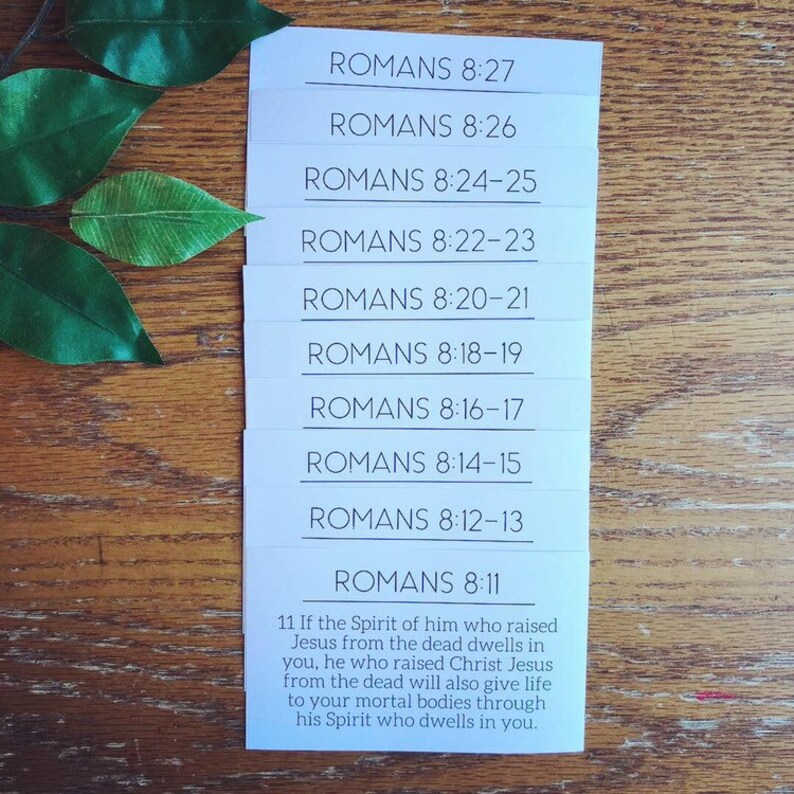 ROMANS 8:27
ROMANS 8:26
ROMANS 8:24-25
ROMANS 8:22-23
ROMANS 8:20-21
ROMANS 8:18-19
ROMANS 8:16-17
ROMANS 8:14-15
ROMANS 8:12-13
ROMANS 8:11
11 If the Spirit of him who raised
Jesus from the dead dwells in
you, he who raised Christ Jesus
from the dead will also give life
to your mortal bodies through
his Spirit who dwells in you.